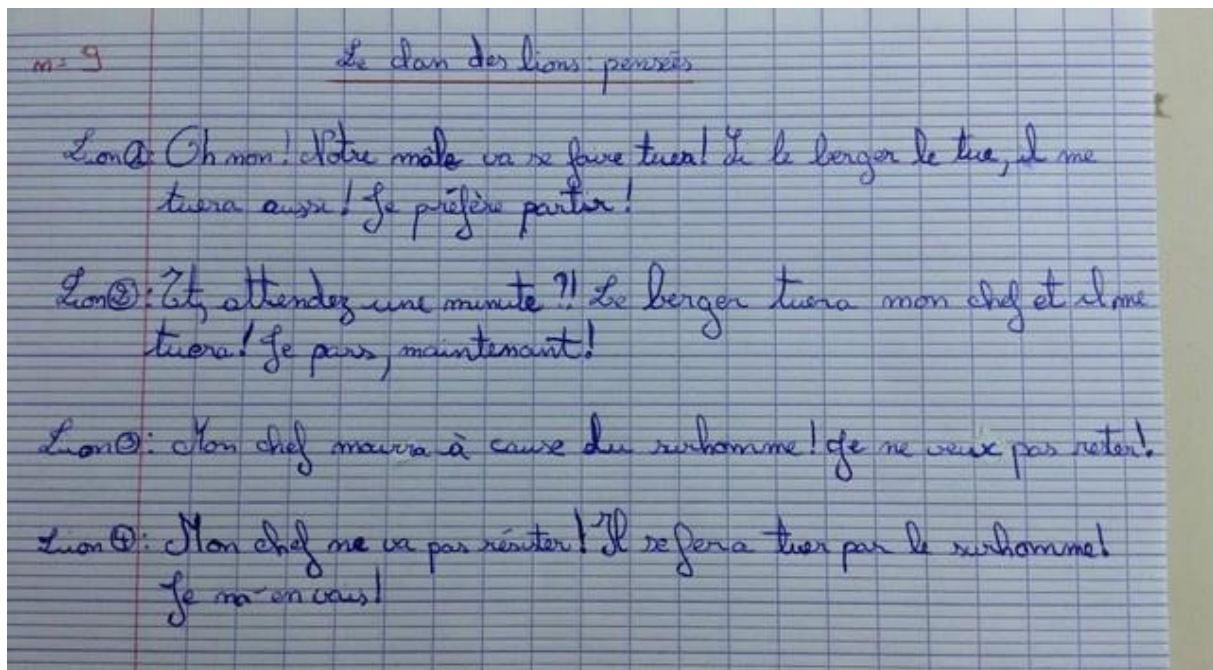 n=9 Le clan des lions: pensées
Lion①: Oh non! Notre mâle va se faire tuer! Si le berger le tue, il me
tuera aussi! Je préfère partir!
Lion②: Et, attendez une minute?! Le berger tuera mon chef et il me
tuera! Je pars, maintenant!
Lion③: Mon chef mourra à cause du surhomme! Je ne veux pas rester!
Lion④: Mon chef ne va pas résister! Il se fera tuer par le surhomme!
Je m'en vais!